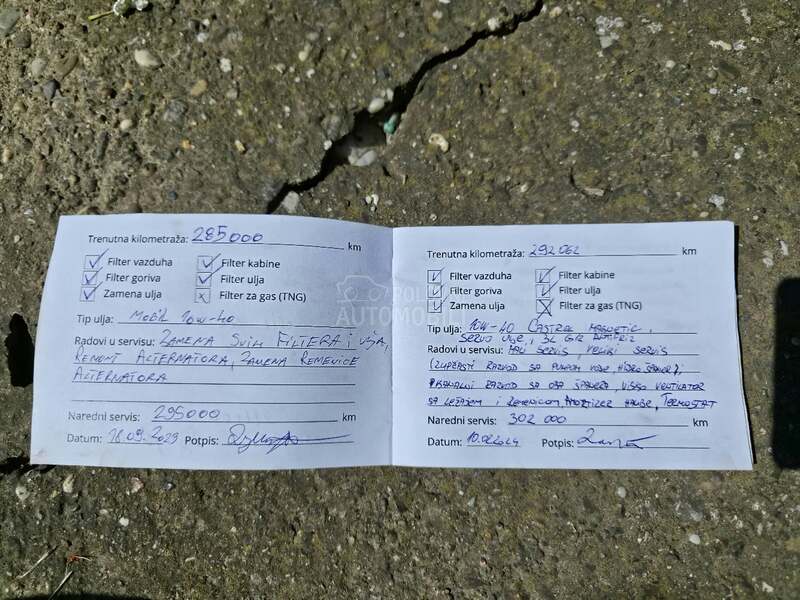 Trenutna kilometraža: 285000 km
Filter vazduha Filter kabine
Filter goriva Filter ulja
Zamena ulja Filter za gas (TNG)
Tip ulja: Mobil 10W-40
Radovi u servisu: ZAMENA SVIH FILTERA I ULJA,
REMONT ALTERNATORA, ZAMENA REMENICE
ALTERNATORA
Naredni servis: 295000 km
Datum: 18.09.2023 Potpis:
Trenutna kilometraža: 292062 km
Filter vazduha Filter kabine
Filter goriva Filter ulja
Zamena ulja Filter za gas (TNG)
Tip ulja: 10W-40 CASTROL MAGNETIC,
SERVO ULJE, 3L G12 ANTIFRIZ
Radovi u servisu: MALI SERVIS, VELIKI SERVIS
(ZUPČASTI RAZVOD SA PUMPOM VODE, HIDRO ŠPANER),
RAZVOD SA OBA ŠPANERA, VISKO VENTILATOR
SA LEŽAJEM I REMENICOM, AMORTIZER HAUBE, TERMOSTAT
Naredni servis: 302 000 km
Datum: 10.02.2024 Potpis:
POLOVNI
AUTOMOBILI